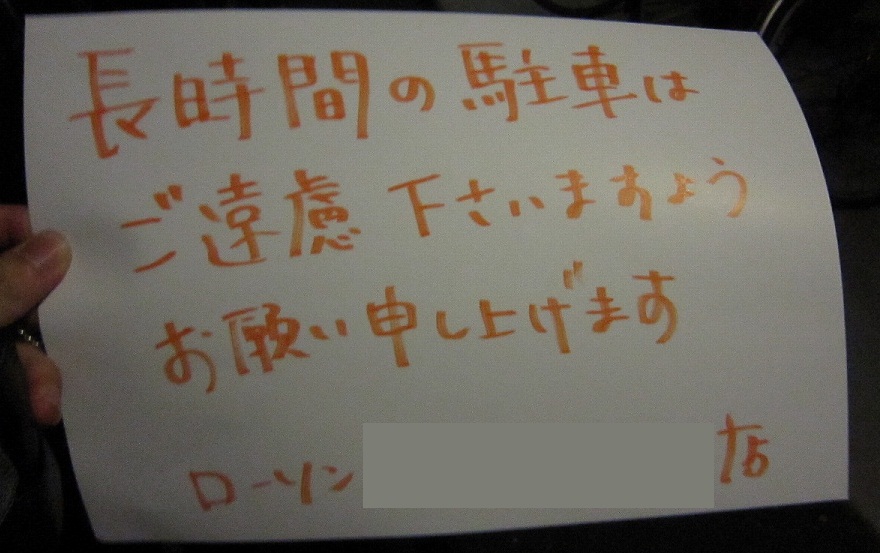 長時間の駐車は
ご遠慮下さいますよう
お願い申し上げます
ローソン 店